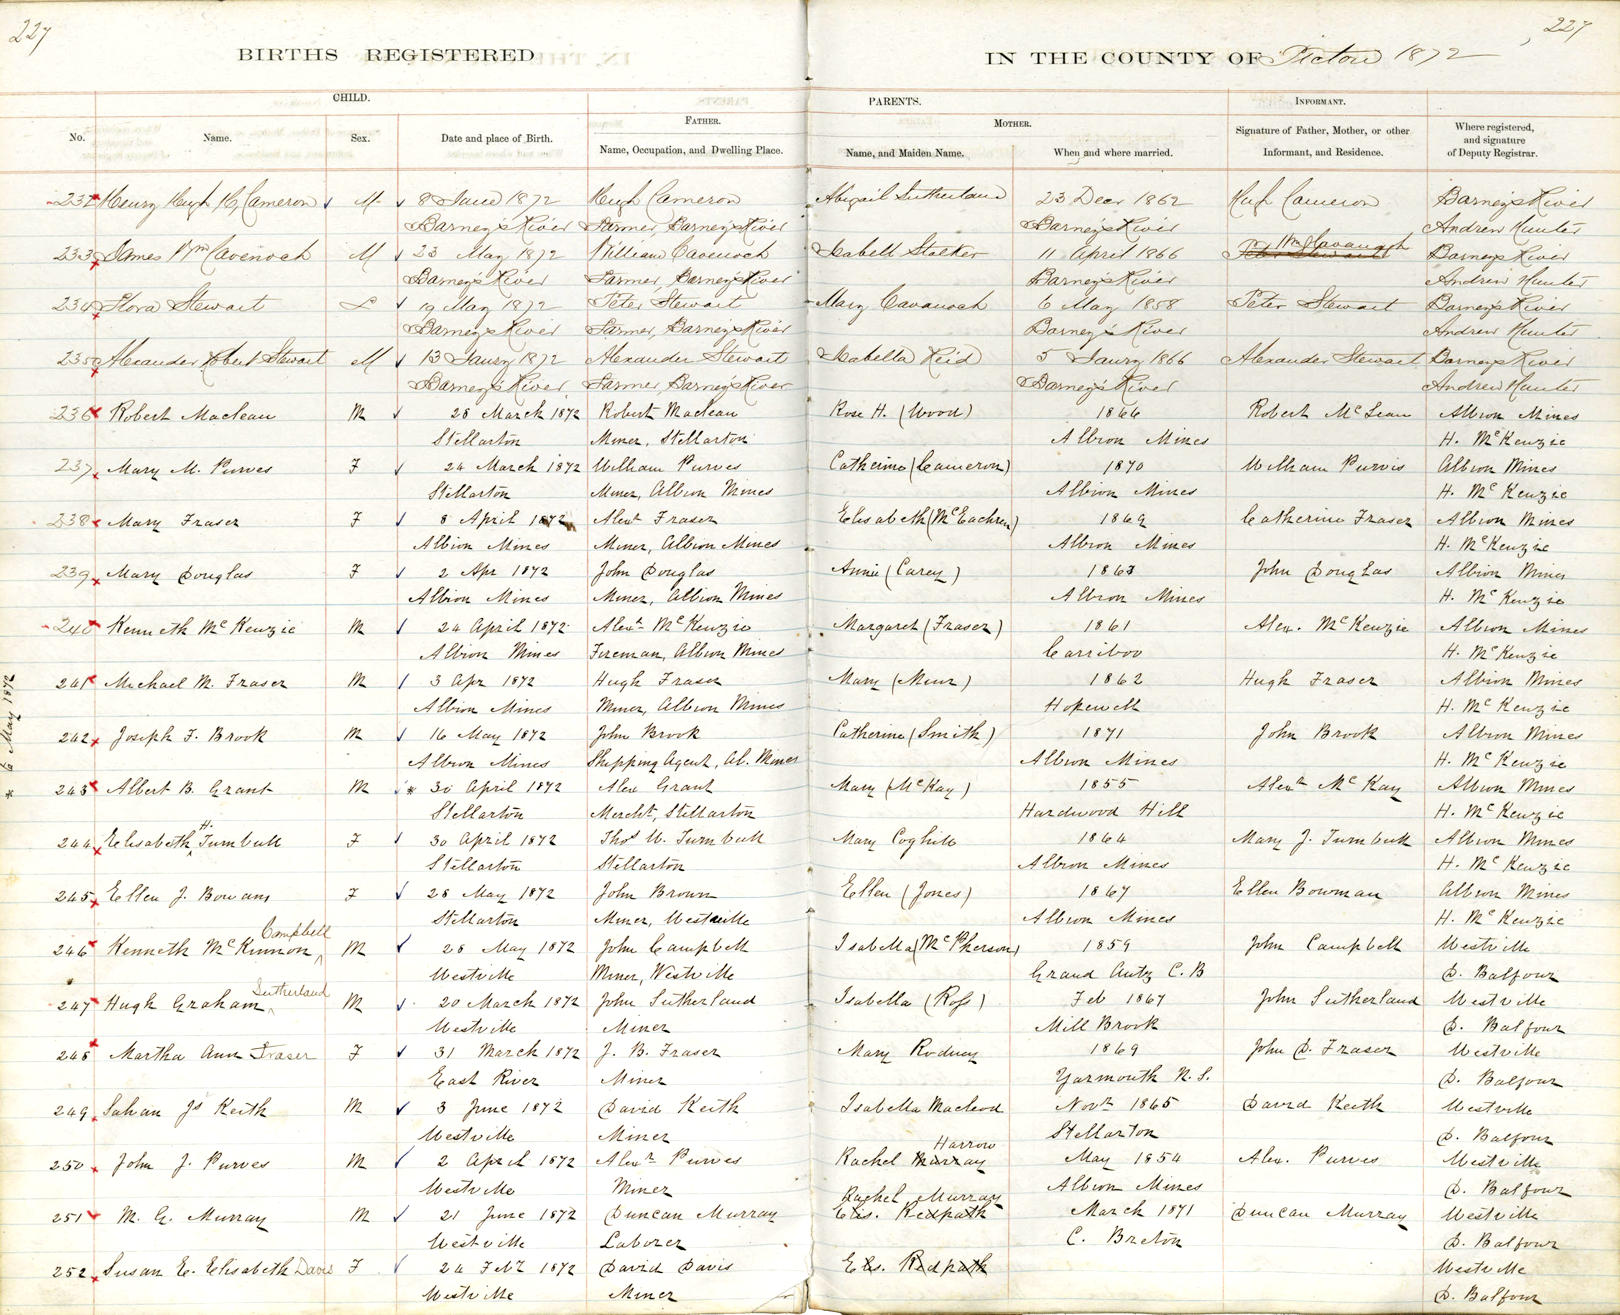 227
227
BIRTHS REGISTERED IN THE COUNTY OF Pictou 1872
CHILD. PARENTS. INFORMANT.
FATHER. MOTHER.
No. Name. Sex. Date and place of Birth. Name, Occupation, and Dwelling Place. Name, and Maiden Name. When and where married. Signature of Father, Mother, or other Informant, and Residence. Where registered, and signature of Deputy Registrar.
232 Henry Hugh Cameron M 8 June 1872 Hugh Cameron Abigail Sutherland 23 Decr 1862 Hugh Cameron Barney's River
Barney's River Farmer, Barney's River Barney's River Andrew Hunter
233 James Wm Cavenoch M 23 May 1872 William Cavenoch Isabell Stalker 11 April 1866 Wm Cavanagh Barney's River
Barney's River Farmer, Barney's River Barney's River Andrew Hunter
234 Flora Stewart F 19 May 1872 Peter Stewart Mary Cavanoch 6 May 1858 Peter Stewart Barney's River
Barney's River Farmer, Barney's River Barney's River Andrew Hunter
235 Alexander Robert Stewart M 13 Janry 1872 Alexander Stewart Isabella Reid 5 Janry 1866 Alexander Stewart Barney's River
Barney's River Farmer, Barney's River Barney's River Andrew Hunter
236 Robert Maclean M 28 March 1872 Robert Maclean Rose H. (Wood) 1866 Robert McLean Albion Mines
Stellarton Miner, Stellarton Albion Mines H. McKenzie
237 Mary M. Purves F 24 March 1872 William Purves Catherine (Cameron) 1870 William Purvis Albion Mines
Stellarton Miner, Albion Mines Albion Mines H. McKenzie
238 Mary Fraser F 8 April 1872 Alexr Fraser Elisabeth (McEachren) 1869 Catherine Fraser Albion Mines
Albion Mines Miner, Albion Mines Albion Mines H. McKenzie
239 Mary Douglas F 2 Apr 1872 John Douglas Annie (Carey) 1863 John Douglas Albion Mines
Albion Mines Miner, Albion Mines Albion Mines H. McKenzie
240 Kenneth McKenzie M 24 April 1872 Alexr McKenzie Margaret (Fraser) 1861 Alex. McKenzie Albion Mines
Albion Mines Fireman, Albion Mines Carriboo H. McKenzie
241 Michael M. Fraser M 3 Apr 1872 Hugh Fraser Mary (Muir) 1862 Hugh Fraser Albion Mines
Albion Mines Miner, Albion Mines Hopewell H. McKenzie
242 Joseph F. Brook M 16 May 1872 John Brook Catherine (Smith) 1871 John Brook Albion Mines
Albion Mines Shipping Agent, Al. Mines Albion Mines H. McKenzie
* 6 May 1872
243 Albert B. Grant M * 30 April 1872 Alex Grant Mary (McKay) 1855 Alexr McKay Albion Mines
Stellarton Mercht, Stellarton Hardwood Hill H. McKenzie
244 Elisabeth H. Turnbull F 30 April 1872 Thos W. Turnbull Mary Coghill 1864 Mary J. Turnbull Albion Mines
Stellarton Stellarton Albion Mines H. McKenzie
245 Ellen J. Bowans F 28 May 1872 John Brown Ellen (Jones) 1867 Ellen Bowman Albion Mines
Stellarton Miner, Westville Albion Mines H. McKenzie
246 Kenneth McKinnon Campbell M 28 May 1872 John Campbell Isabella (McPherson) 1859 John Campbell Westville
Westville Miner, Westville Grand Antz C. B D. Balfour
247 Hugh Graham Sutherland M 20 March 1872 John Sutherland Isabella (Ross) Feb 1867 John Sutherland Westville
Westville Miner Mill Brook D. Balfour
248 Martha Ann Fraser F 31 March 1872 J. B. Fraser Mary Rodney 1869 John D. Fraser Westville
East River Miner Yarmouth N. S. D. Balfour
249 Jas Keith M 3 June 1872 David Keith Isabella Macleod Novr 1865 David Keith Westville
Westville Miner Stellarton D. Balfour
250 John J. Purves M 2 April 1872 Alexr Purves Rachel Murray Harrow May 1854 Alex. Purves Westville
Westville Miner Albion Mines D. Balfour
251 M. G. Murray M 21 June 1872 Duncan Murray Rachel Murray Elis. Redpath March 1871 Duncan Murray Westville
Westville Laborer C. Breton D. Balfour
252 Susan E. Elisabeth Davis F 24 Febr 1872 David Davis Elis. Redpath Westville
Westville Miner D. Balfour